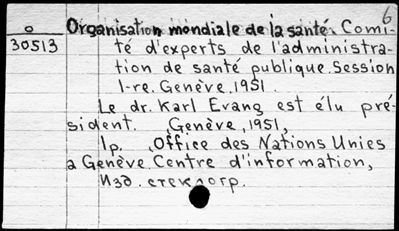 6
o Organisation mondiale de la santé. Comi-
30513 té d'experts de l'administra-
tion de santé publique. Session
1-re. Genève, 1951.
Le dr. Karl Evang est élu pré-
sident. Genève, 1951,
1p. Office des Nations Unies
a Genève. Centre d'information,
Изд. стеклогр.